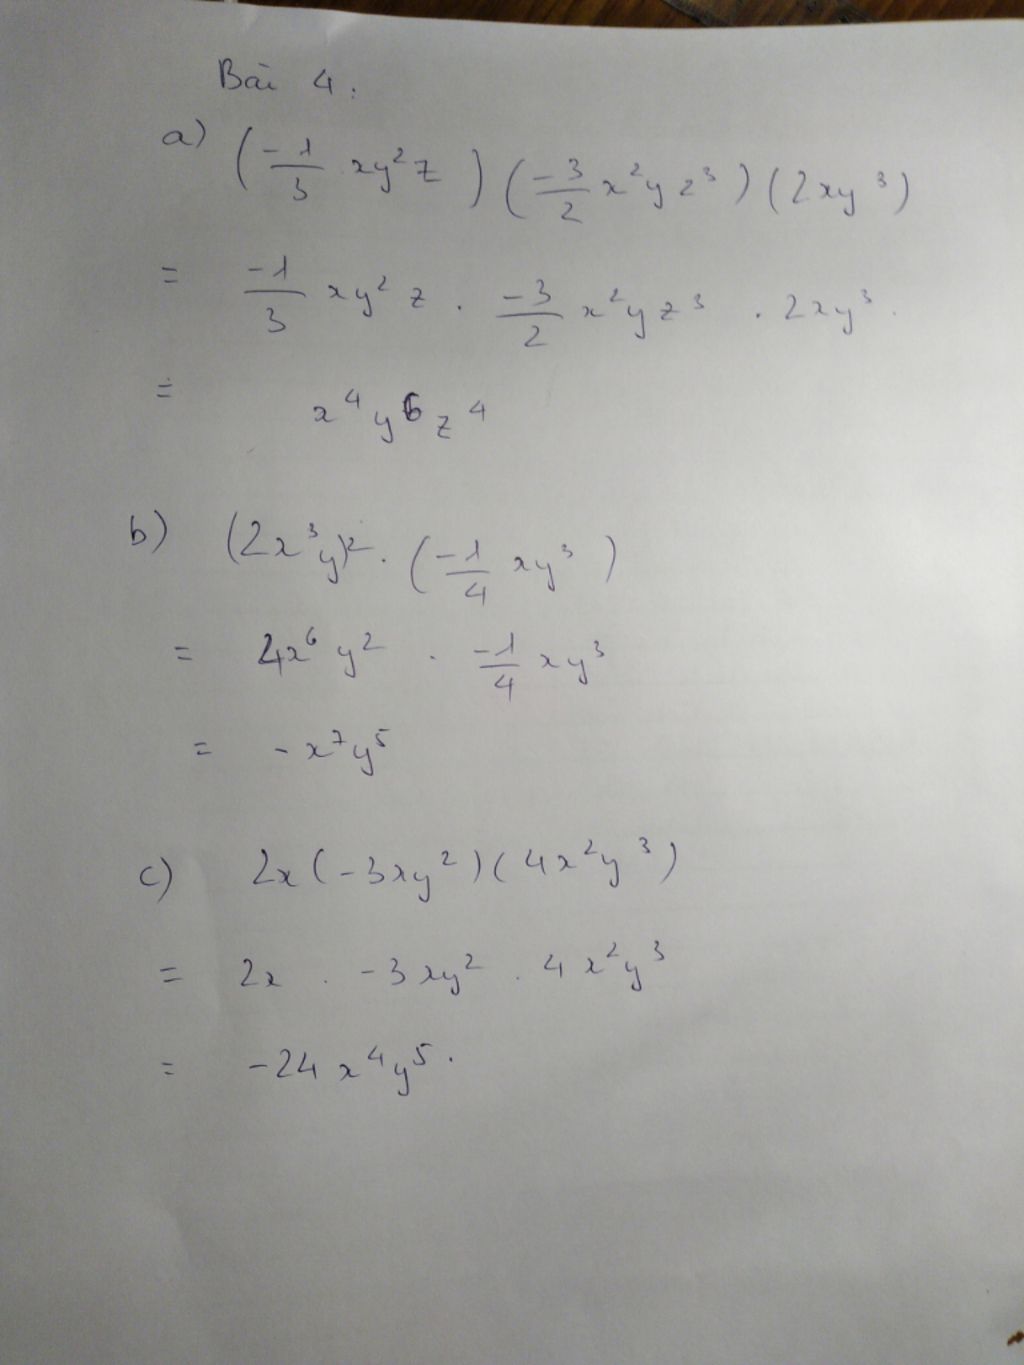 Bài 4.
a) (-1/3 xy²z) (-3/2 x²yz³) (2xy³)
= -1/3 xy²z . -3/2 x²yz³ . 2xy³.
= x⁴y⁶z⁴
b) (2x³y)² . (-1/4 xy³)
= 4x⁶y² . -1/4 xy³
= -x⁷y⁵
c) 2x(-3xy²)(4x²y³)
= 2x . -3xy² . 4x²y³
= -24x⁴y⁵.